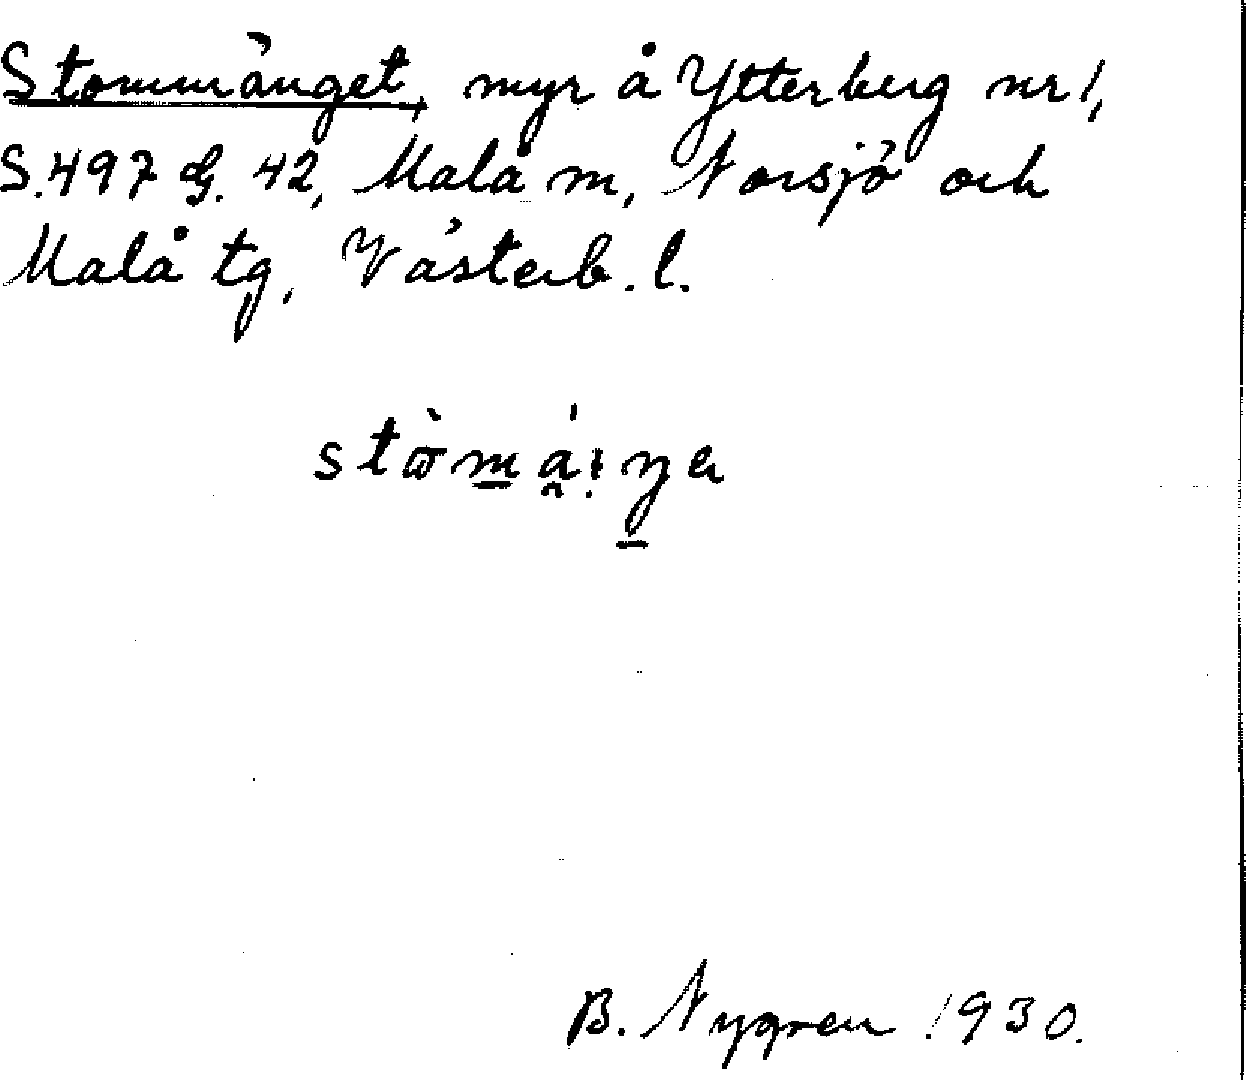 Stommänget, myr å Ytterberg nr 1,
S. 497 G. 42, Malå m, Norsjö och
Malå tg, Västerb. l.
B. Nygren 1930.